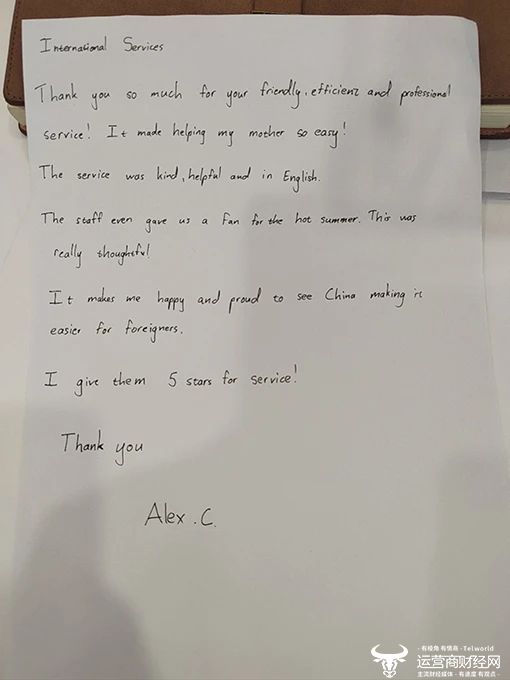 International Services
Thank you so much for your friendly, efficient and professional
service! It made helping my mother so easy!
The service was kind, helpful and in English.
The staff even gave us a Fan for the hot summer. This was
really thoughtful!
It makes me happy and proud to see China making it
easier for foreigners.
I give them 5 stars for service!
Thank you
Alex . C.
·有棱角 有情商·Telworld
运营商财经网
主流财经媒体·有速度 有观点·